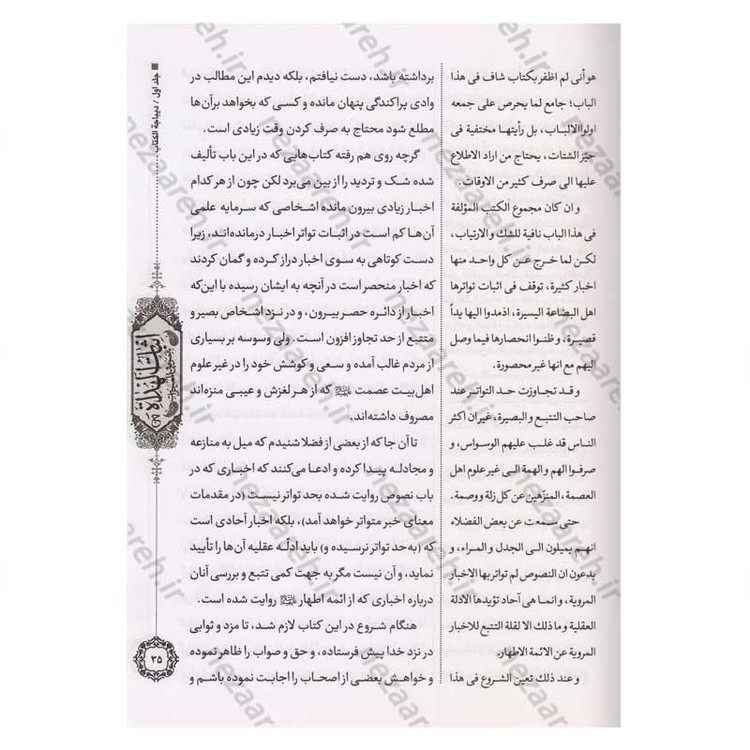 جلد اول / دیباجة الکتاب
هو أنی لم اظفر بکتاب شاف فی هذا
الباب؛ جامع لما یحرص علی جمعه
اولوا الالباب، بل رأیتها مختفیة فی
حیّز الشتات، یحتاج من اراد الاطلاع
علیها الی صرف کثیر من الاوقات.
و ان کان مجموع الکتب المؤلفة
فی هذا الباب نافیة للشک و الارتیاب،
لکن لما خرج عن کل واحد منها
اخبار کثیرة، توقف فی اثبات تواترها
اهل البضاعة الیسیرة، اذ مدوا الیها یداً
قصیرة، و ظنوا انحصارها فیما وصل
الیهم مع انها غیر محصورة.
و قد تجاوزت حد التواتر عند
صاحب التتبع و البصیرة، غیر ان اکثر
الناس قد غلب علیهم الوسواس، و
صرفوا الهم و الهمة الی غیر علوم اهل
العصمة، المنزّهین عن کل زلة و وصمة.
حتی سمعت عن بعض الفضلاء
انهم یمیلون الی الجدل و المراء، و
یدعون ان النصوص لم تواتر بها الاخبار
المرویة، و انما هی آحاد تؤیدها الادلة
العقلیة و ما ذلک الا لقلة التتبع للاخبار
المرویة عن الائمة الاطهار.
و عند ذلک تعین الشروع فی هذا
برداشته باشد، دست نیافتم، بلکه دیدم این مطالب در
وادی پراکندگی پنهان مانده و کسی که بخواهد بر آن‌ها
مطلع شود محتاج به صرف کردن وقت زیادی است.
گرچه روی هم رفته کتاب‌هایی که در این باب تألیف
شده شک و تردید را از بین می‌برد لکن چون از هر کدام
اخبار زیادی بیرون مانده اشخاصی که سرمایه علمی
آن‌ها کم است در اثبات تواتر اخبار درمانده‌اند، زیرا
دست کوتاهی به سوی اخبار دراز کرده و گمان کردند
که اخبار منحصر است در آنچه به ایشان رسیده با این‌که
اخبار از دائره حصر بیرون، و در نزد اشخاص بصیر و
متتبع از حد تجاوز افزون است. ولی وسوسه بر بسیاری
از مردم غالب آمده و سعی و کوشش خود را در غیر علوم
اهل بیت عصمت علیهم السلام که از هر لغزش و عیبی منزه‌اند
مصروف داشته‌اند.
تا آن جا که از بعضی از فضلا شنیدم که میل به منازعه
و مجادله پیدا کرده و ادعا می‌کنند که اخباری که در
باب نصوص روایت شده بحد تواتر نیست (در مقدمات
معنای خبر متواتر خواهد آمد)، بلکه اخبار آحادی است
که (به حد تواتر نرسیده و) باید ادلّه عقلیه آن‌ها را تأیید
نماید، و آن نیست مگر به جهت کمی تتبع و بررسی آنان
درباره اخباری که از ائمه اطهار علیهم السلام روایت شده است.
هنگام شروع در این کتاب لازم شد، تا مزد و ثوابی
در نزد خدا پیش فرستاده، و حق و صواب را ظاهر نموده
و خواهش بعضی از اصحاب را اجابت نموده باشم و
اثبات الهداة
۳۵
nezaareh.ir